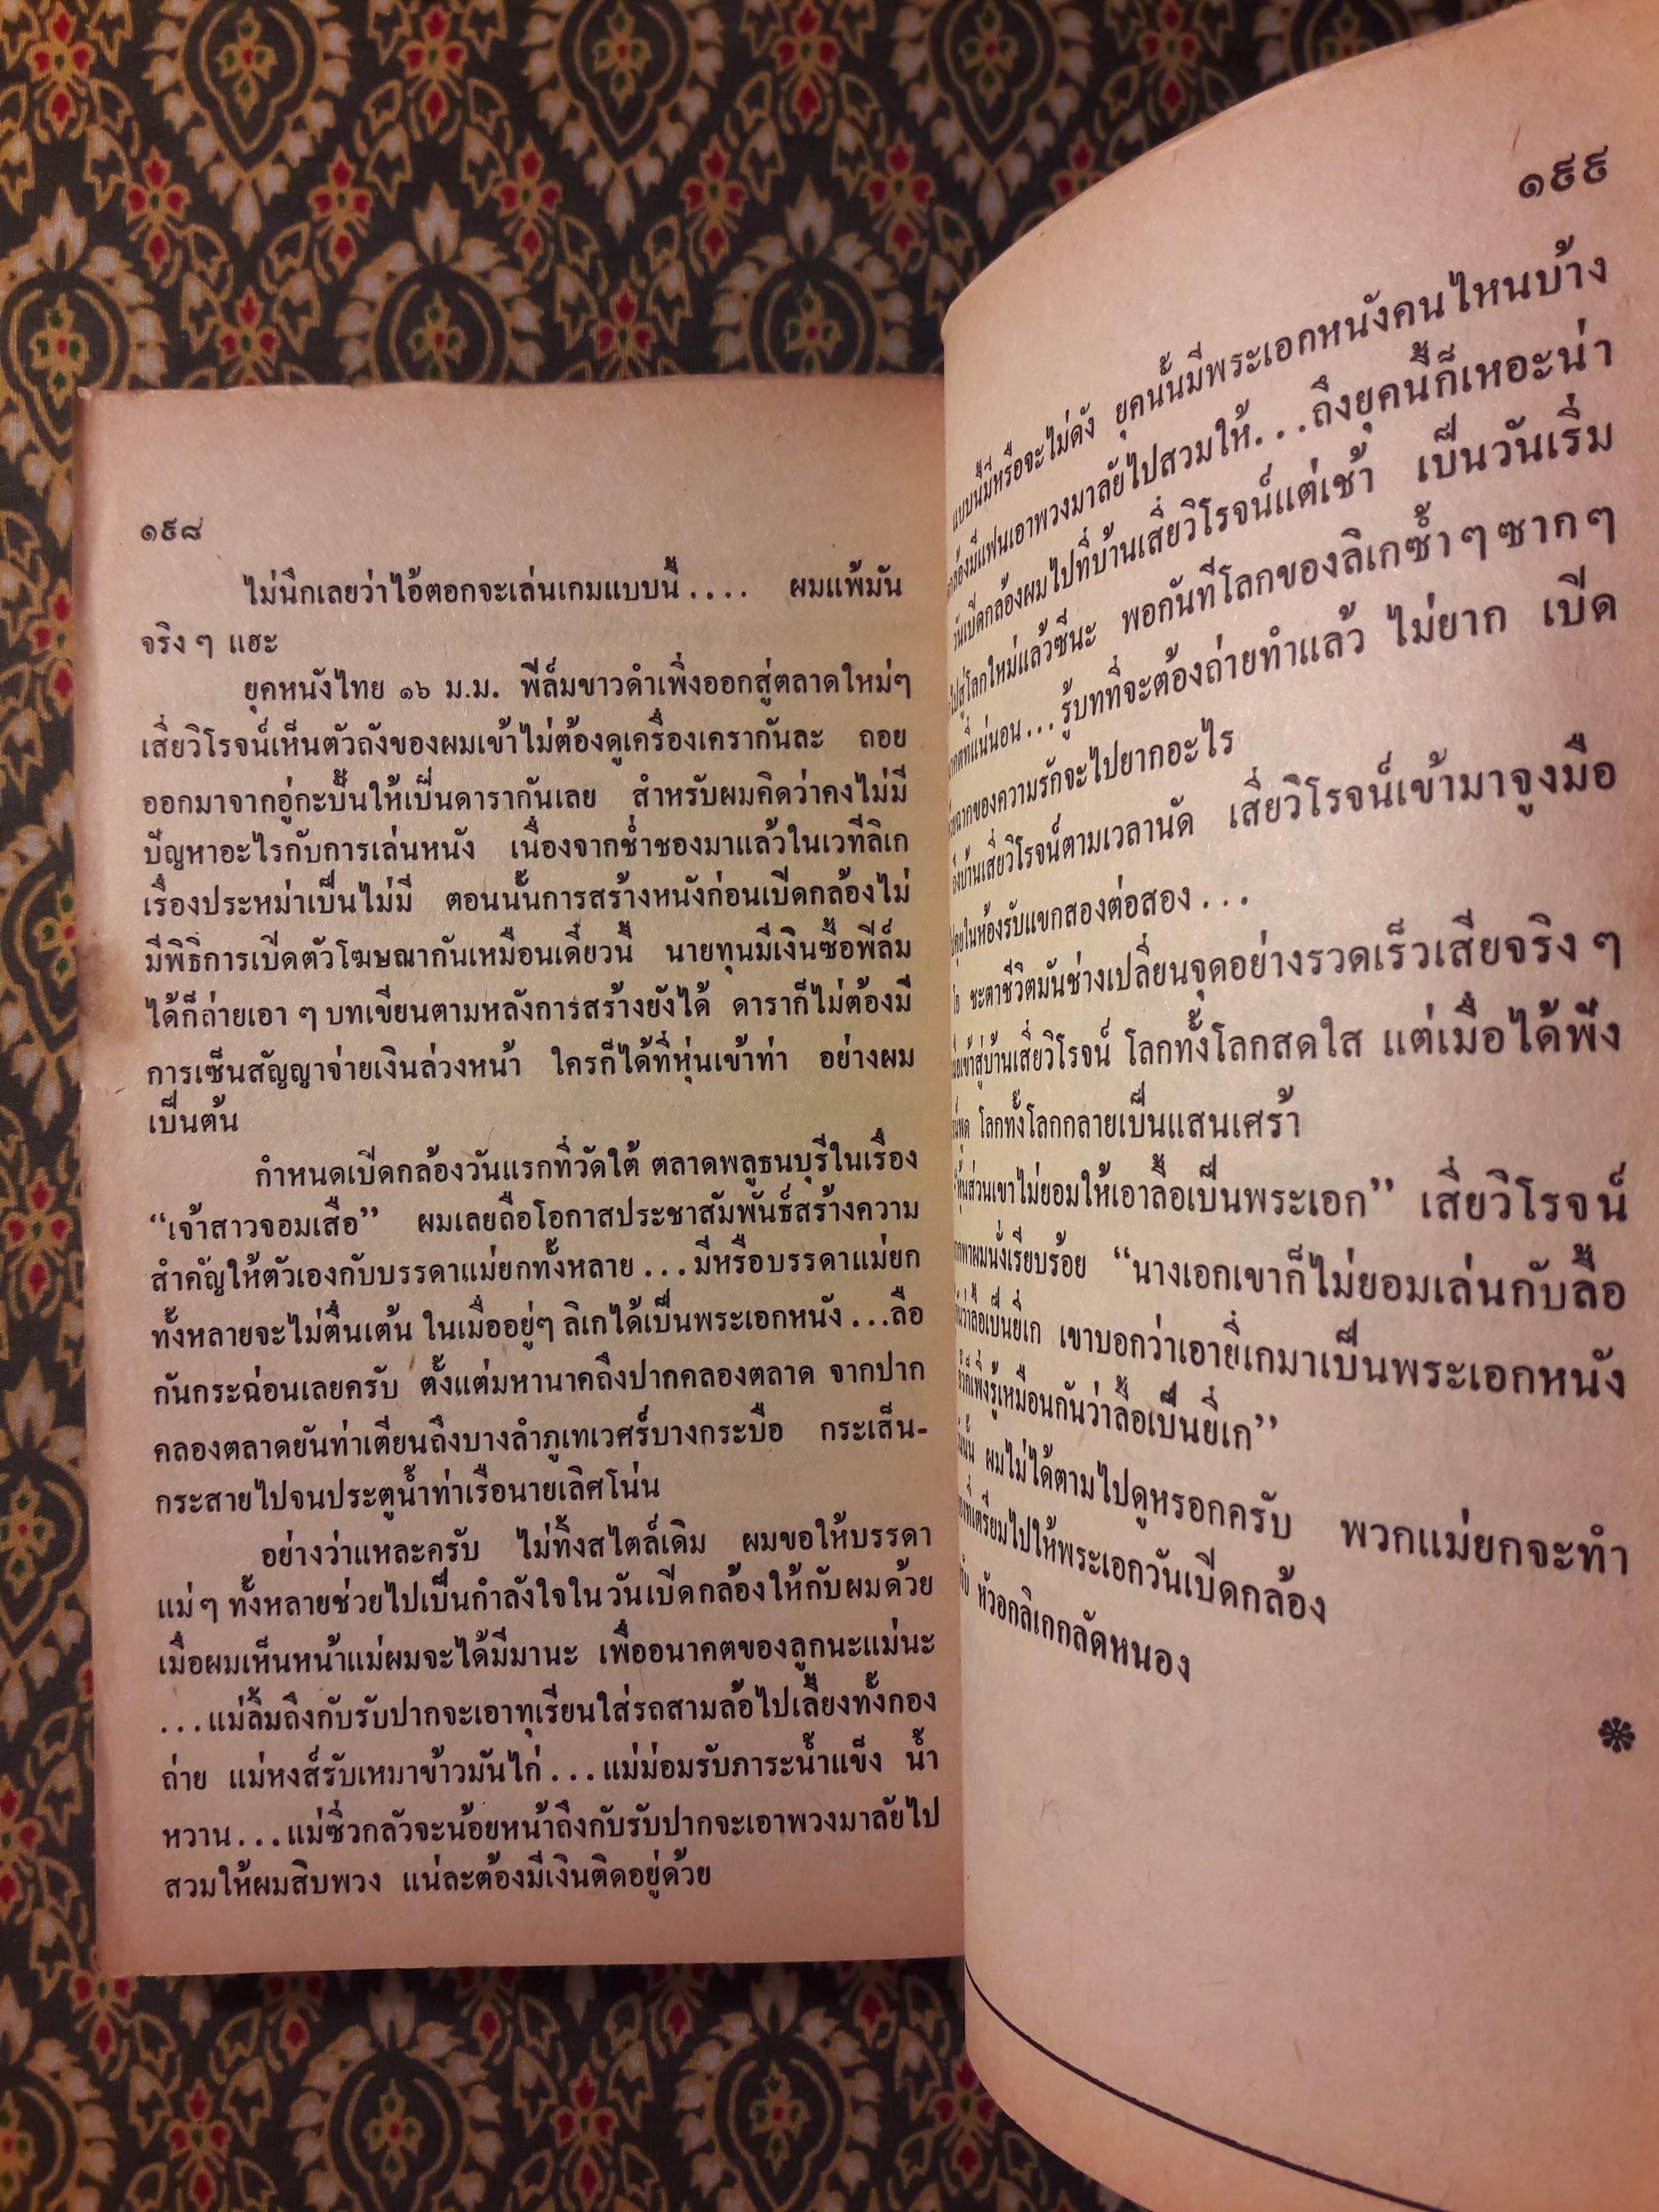 ๑๙๘
ไม่นึกเลยว่าไอ้ตอกจะเล่นเกมแบบนี้.... ผมแพ้มัน
จริง ๆ แฮะ
ยุคหนังไทย ๑๖ ม.ม. ฟีล์มขาวดำเพิ่งออกสู่ตลาดใหม่ๆ
เสี่ยวิโรจน์เห็นตัวถังของผมเข้าไม่ต้องดูเครื่องเครากันละ ถอย
ออกมาจากอู่กะปั๊นให้เป็นดารากันเลย สำหรับผมคิดว่าคงไม่มี
ปัญหาอะไรกับการเล่นหนัง เนื่องจากช่ำชองมาแล้วในเวทีลิเก
เรื่องประหม่าเป็นไม่มี ตอนนั้นการสร้างหนังก่อนเปิดกล้องไม่
มีพิธีการเปิดตัวโฆษณากันเหมือนเดี๋ยวนี้ นายทุนมีเงินซื้อฟีล์ม
ได้ก็ถ่ายเอา ๆ บทเขียนตามหลังการสร้างยังได้ ดาราก็ไม่ต้องมี
การเซ็นสัญญาจ่ายเงินล่วงหน้า ใครก็ได้ที่หุ่นเข้าท่า อย่างผม
เป็นต้น
กำหนดเปิดกล้องวันแรกที่วัดใต้ ตลาดพลูธนบุรีในเรื่อง
“เจ้าสาวจอมเสือ” ผมเลยถือโอกาสประชาสัมพันธ์สร้างความ
สำคัญให้ตัวเองกับบรรดาแม่ยกทั้งหลาย...มีหรือบรรดาแม่ยก
ทั้งหลายจะไม่ตื่นเต้น ในเมื่ออยู่ๆ ลิเกได้เป็นพระเอกหนัง...ลือ
กันกระฉ่อนเลยครับ ตั้งแต่มหานาคถึงปากคลองตลาด จากปาก
คลองตลาดยันท่าเตียนถึงบางลำภูเทเวศร์บางกระบือ กระเส็น-
กระสายไปจนประตูน้ำท่าเรือนายเลิศโน่น
อย่างว่าแหละครับ ไม่ทิ้งสไตล์เดิม ผมขอให้บรรดา
แม่ๆ ทั้งหลายช่วยไปเป็นกำลังใจในวันเปิดกล้องให้กับผมด้วย
เมื่อผมเห็นหน้าแม่ผมจะได้มีมานะ เพื่ออนาคตของลูกนะแม่นะ
...แม่ลิ้มถึงกับรับปากจะเอาทุเรียนใส่รถสามล้อไปเลี้ยงทั้งกอง
ถ่าย แม่หงส์รับเหมาข้าวมันไก่...แม่ม่อมรับภาระน้ำแข็ง น้ำ
หวาน...แม่ซิ่วกลัวจะน้อยหน้าถึงกับรับปากจะเอาพวงมาลัยไป
สวมให้ผมสิบพวง แน่ละต้องมีเงินติดอยู่ด้วย
๑๙๙
แบบนี้มีหรือจะไม่ดัง ยุคนั้นมีพระเอกหนังคนไหนบ้าง
มีแฟนเอาพวงมาลัยไปสวมให้...ถึงยุคนี้ก็เหอะน่า
วันเปิดกล้องผมไปที่บ้านเสี่ยวิโรจน์แต่เช้า เป็นวันเริ่ม
ไปสู่โลกใหม่แล้วซีนะ พอกันทีโลกของลิเกซ้ำๆซากๆ
ที่แน่นอน...รู้บทที่จะต้องถ่ายทำแล้ว ไม่ยาก เปิด
ฉากของความรักจะไปยากอะไร
ถึงบ้านเสี่ยวิโรจน์ตามเวลานัด เสี่ยวิโรจน์เข้ามาจูงมือ
ไปคุยในห้องรับแขกสองต่อสอง...
โอ ชะตาชีวิตมันช่างเปลี่ยนจุดอย่างรวดเร็วเสียจริง ๆ
เข้าสู่บ้านเสี่ยวิโรจน์ โลกทั้งโลกสดใส แต่เมื่อได้ฟัง
พูด โลกทั้งโลกกลายเป็นแสนเศร้า
หุ้นส่วนเขาไม่ยอมให้เอาลื้อเป็นพระเอก” เสี่ยวิโรจน์
พาผมนั่งเรียบร้อย “นางเอกเขาก็ไม่ยอมเล่นกับลื้อ
ว่าลื้อเป็นยี่เก เขาบอกว่าเอายี่เกมาเป็นพระเอกหนัง
ก็เพิ่งรู้เหมือนกันว่าลื้อเป็นยี่เก”
ผมไม่ได้ตามไปดูหรอกครับ พวกแม่ยกจะทำ
ที่เตรียมไปให้พระเอกวันเปิดกล้อง
หัวอกลิเกกลัดหนอง